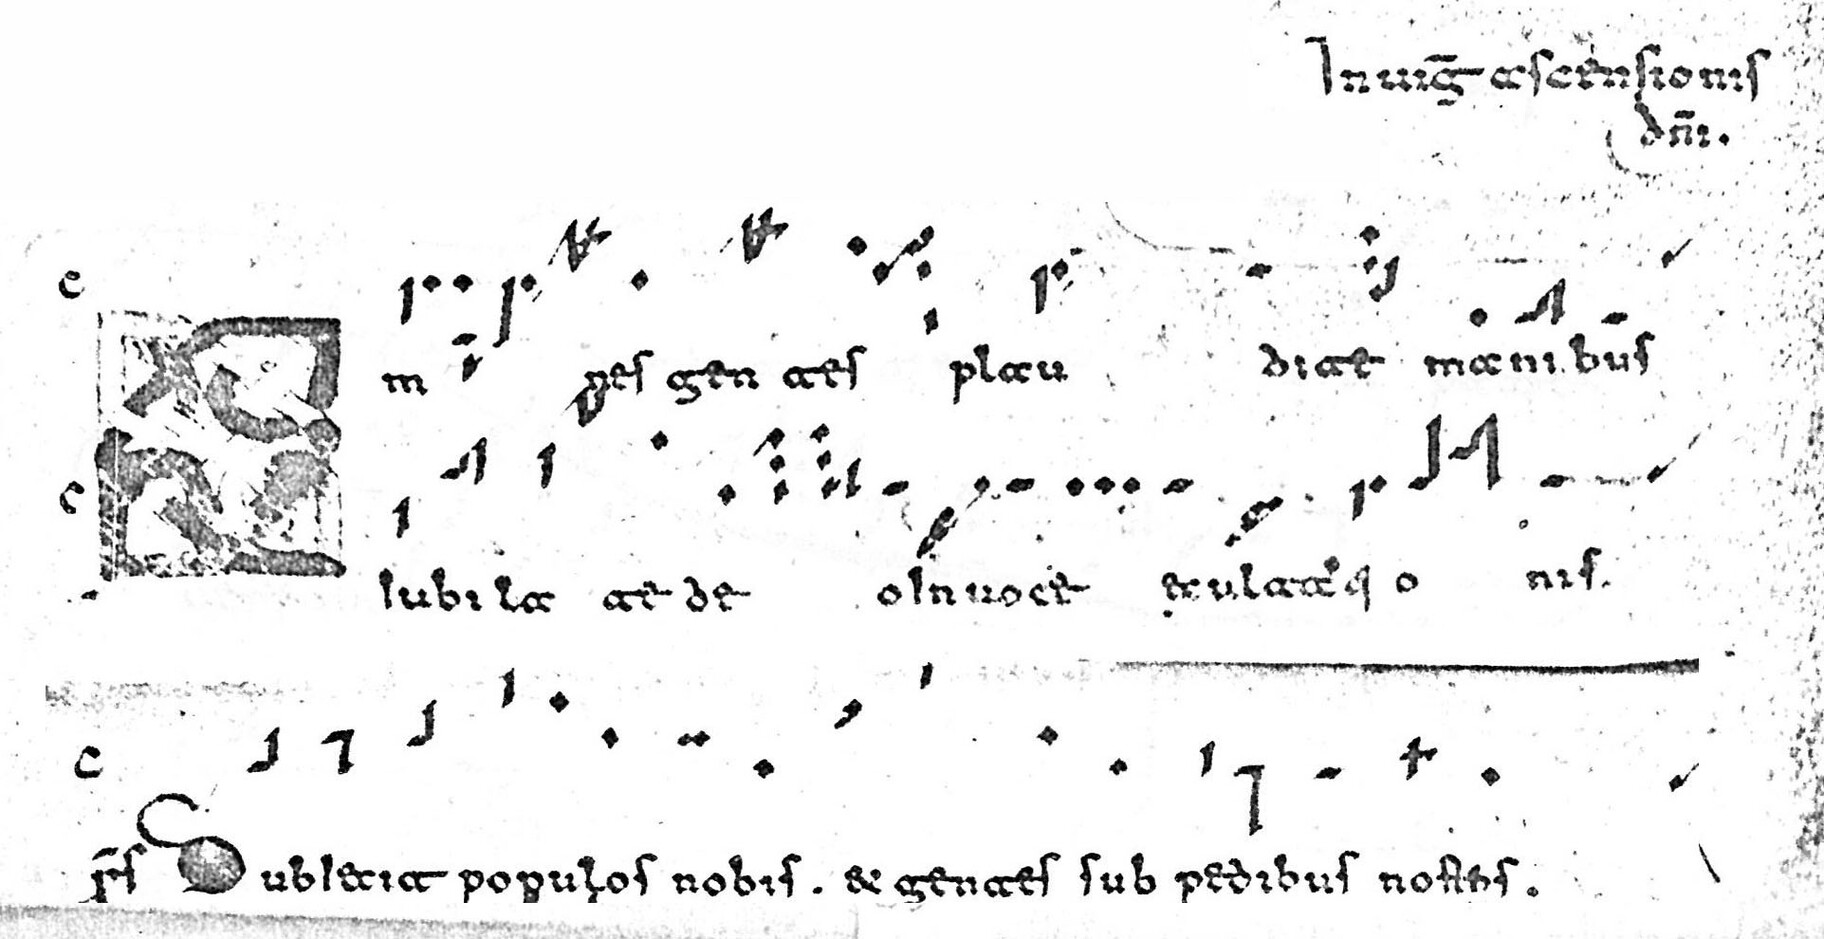 In uiḡ ascensionis
dn̄i.
Om nes gen tes plau dite manibus
Iubi la te deo In uoce exultati o nis.
p̄s Subiecit populos nobis. & gentes sub pedibus nostris.